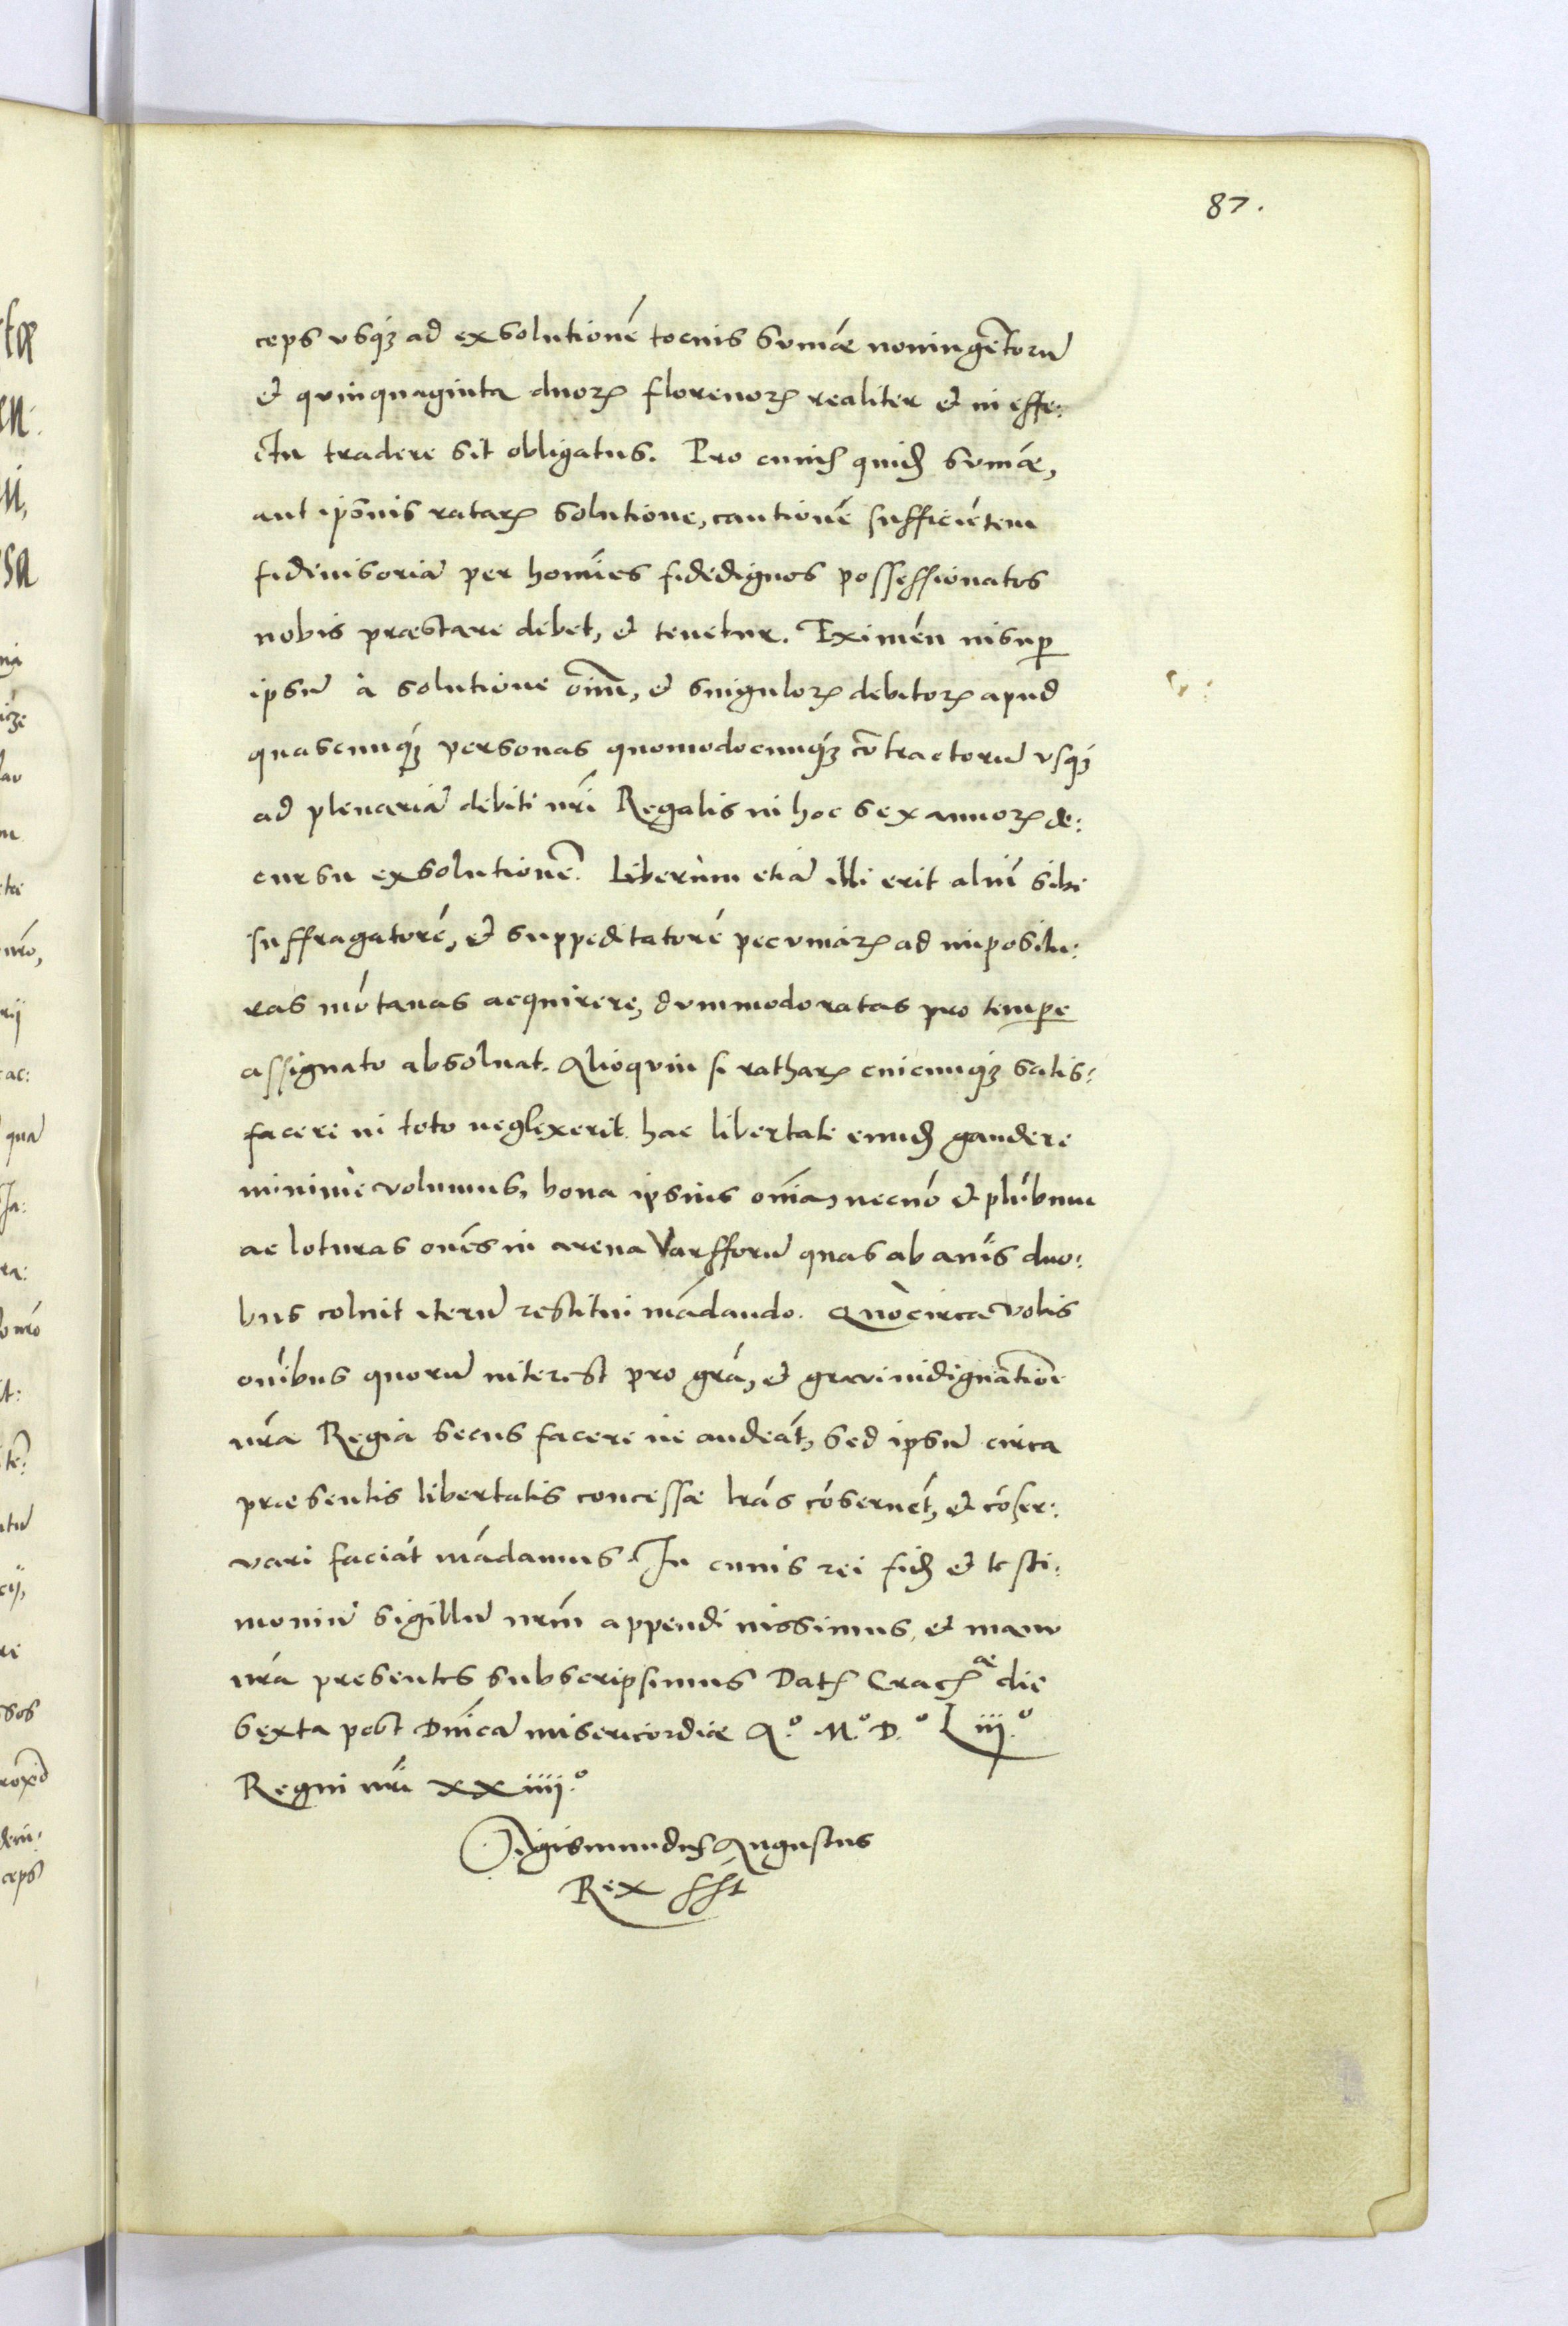 87.
ceps vsq́ꝫ ad exsolutionē tocius Sūmæ noningētorū
et quinquaginta duoꝝ florenoꝝ realiter et in effe:
ctu tradere sit obligatus. Pro cuius quidē Sūmæ,
aut ipsius rataꝝ solutione, cautionē sufficiētem
fideiusoriā per homīes fidedignos possessionatos
nobis præstare debet, et tenetur. Eximēn insuꝑ
ipsū à solutione oīm, et singuloꝝ debitoꝝ apud
quascunq́ꝫ personas quomodocunq́ꝫ cōtractorū vsq́ꝫ
ad plenariā debiti nr̄i Regalis in hoc sex annoꝝ de:
cursu exsolutionē. Liberum etiā illi erit aliū sibi
suffragatorē, et suppeditatorē pecuniaꝝ ad impositu:
ras mōtanas acquirere, dummodo ratas pro temꝑe
assignato absoluat. Alioquin si rathaꝝ cuicunq́ꝫ satis:
facere in toto neglexerit hac libertate eundē gaudere
minimè volumus, bona ipsius oīa, necnō et plūbum
ac loturas oīes in arena Varfforū quas ab anīs duo:
bus coluit iterū restitui mādando. Quocirca vobis
oībus quorū interest pro grā, et graui indignatione
nr̄a Regia secus facere ne audeāt, sed ipsū circa
præsentis libertatis concessæ lr̄as cōseruēt, et cōser:
vari faciāt mādamus. In cuius rei fidē et testi:
moniū sigillū nr̄m appendi iussimus, et manu
nr̄a presentes subscripsimus Datꝭ Cracꝭ æ die
sexta post Dn̄icā misericordiæ A.º M.º D.º Liii.º
Regni nr̄i xxiiij.º
Sigismundus Augustus
Rex sst